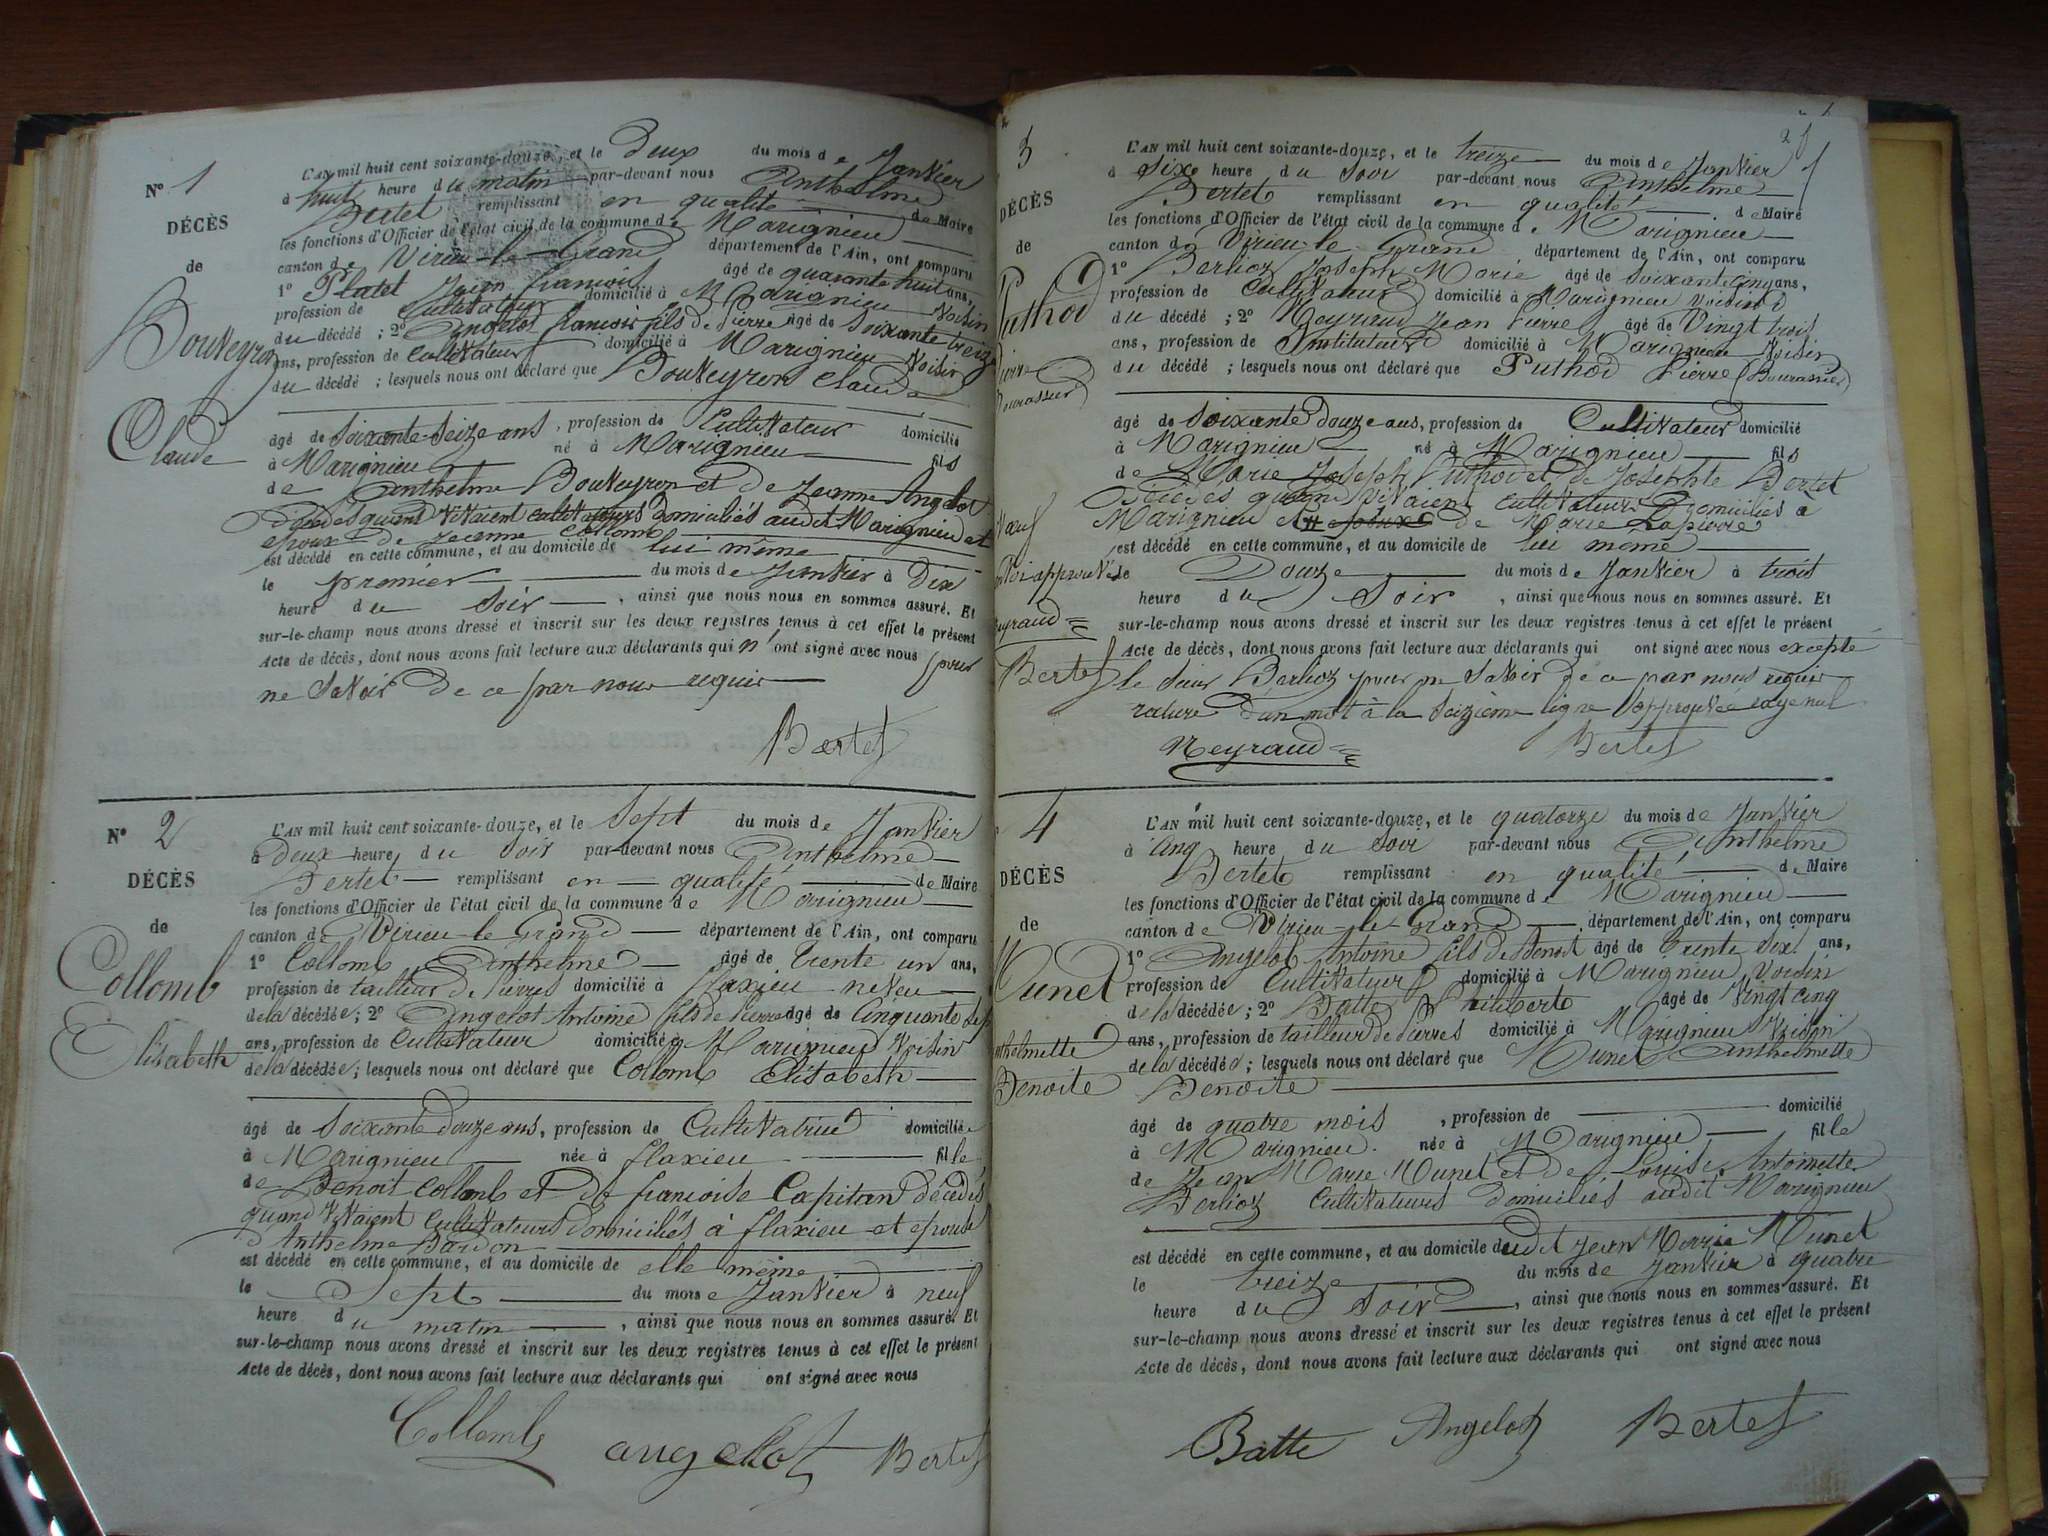 N° 1
DÉCÈS
de
Bouveyron
Claude
L'AN mil huit cent soixante-douze, et le Deux du mois de Janvier
à huit heure du matin par-devant nous Anthelme
Bertet remplissant en qualité de Maire
les fonctions d'Officier de l'état civil de la commune de Marignieu
canton de Virieu-le-Grand département de l'Ain, ont comparu
1° Platet Jean françois âgé de quarante huit ans,
profession de Cultivateur domicilié à Marignieu Voisin
du décédé ; 2° Angelot françois fils de Pierre âgé de Soixante treize
ans, profession de Cultivateur domicilié à Marignieu Voisin
du décédé ; lesquels nous ont déclaré que Bouveyron Claude
âgé de Soixante Seize ans, profession de Cultivateur domicilié
à Marignieu né à Marignieu fils
de Anthelme Bouveyron et de Jeanne Angelot
Décédés quand vivaient cultivateurs domiciliés audit Marignieu et
epoux de Jeanne Collomb
est décédé en cette commune, et au domicile de lui même
le premier du mois de Janvier à Dix
heure du Soir, ainsi que nous nous en sommes assuré. Et
sur-le-champ nous avons dressé et inscrit sur les deux registres tenus à cet effet le présent
Acte de décès, dont nous avons fait lecture aux déclarants qui n'ont signé avec nous pour
ne Savoir de ce par nous requis
Bertet
N° 2
DÉCÈS
de
Collomb
Elisabeth
L'AN mil huit cent soixante-douze, et le Sept du mois de Janvier
à Deux heure du Soir par-devant nous Anthelme
Bertet remplissant en qualité de Maire
les fonctions d'Officier de l'état civil de la commune de Marignieu
canton de Virieu-le-Grand département de l'Ain, ont comparu
1° Collomb Anthelme âgé de trente un ans,
profession de tailleur de Pierres domicilié à flaxieu neveu
de la décédée ; 2° Angelot Antoine fils de Pierre âgé de Cinquante Sept
ans, profession de Cultivateur domicilié à Marignieu Voisin
de la décédée ; lesquels nous ont déclaré que Collomb Elisabeth
âgé de Soixante Douze ans, profession de Cultivatrice domiciliée
à Marignieu née à flaxieu fille
de Benoit Collomb et de françoise Capitan décédés
quand Vivaient Cultivateurs Domiciliés à flaxieu et epouse
d'Anthelme Bardon
est décédé en cette commune, et au domicile de elle même
le Sept du mois de Janvier à neuf
heure du matin, ainsi que nous nous en sommes assuré. Et
sur-le-champ nous avons dressé et inscrit sur les deux registres tenus à cet effet le présent
Acte de décès, dont nous avons fait lecture aux déclarants qui ont signé avec nous
Collomb angellot Bertet
3
DÉCÈS
de
Puthod
Pierre
Bourassier
L'AN mil huit cent soixante-douze, et le treize du mois de Janvier
à Six heure du Soir par-devant nous Anthelme
Bertet remplissant en qualité de Maire
les fonctions d'Officier de l'état civil de la commune de Marignieu
canton de Virieu-le-Grand département de l'Ain, ont comparu
1° Berlioz Joseph Marie âgé de Soixante cinq ans,
profession de Cultivateur domicilié à Marignieu Voisin
du décédé ; 2° Neyraud Jean Pierre âgé de Vingt trois
ans, profession de Instituteur domicilié à Marignieu Voisin
du décédé ; lesquels nous ont déclaré que Puthod Pierre (Bourassier)
âgé de Soixante douze ans, profession de Cultivateur domicilié
à Marignieu né à Marignieu fils
de Marie Joseph Puthod et de Josephte Bertet
Décédés quand Vivaient cultivateurs Domiciliés à
Marignieu et epoux de Marie Lapierre
est décédé en cette commune, et au domicile de lui même
le Douze du mois de Janvier à trois
heure du Soir, ainsi que nous nous en sommes assuré. Et
sur-le-champ nous avons dressé et inscrit sur les deux registres tenus à cet effet le présent
Acte de décès, dont nous avons fait lecture aux déclarants qui ont signé avec nous excepté
le Sieur Berlioz pour ne Savoir de ce par nous requis
rature d'un mot à la Seizième ligne approuvée rayé nul
Neyraud Bertet
Veuf
approuvé
Neyraud
Bertet
4
DÉCÈS
de
Munet
Anthelmette
Benoite
L'AN mil huit cent soixante-douze, et le quatorze du mois de Janvier
à Cinq heure du Soir par-devant nous Anthelme
Bertet remplissant en qualité de Maire
les fonctions d'Officier de l'état civil de la commune de Marignieu
canton de Virieu-le-Grand département de l'Ain, ont comparu
1° Angelot Antoine fils de Benoit âgé de trente Six ans,
profession de Cultivateur domicilié à Marignieu Voisin
de la décédée ; 2° Batte Philiberte âgé de Vingt cinq
ans, profession de tailleur de Pierres domicilié à Marignieu Voisin
de la décédée ; lesquels nous ont déclaré que Munet Anthelmette
Benoite
âgé de quatre mois, profession de domicilié
à Marignieu née à Marignieu fille
de Jean Marie Munet et de Louise Antoinette
Berlioz Cultivateurs domiciliés audit Marignieu
est décédé en cette commune, et au domicile dudit Jean Marie Munet
le treize du mois de Janvier à quatre
heure du Soir, ainsi que nous nous en sommes assuré. Et
sur-le-champ nous avons dressé et inscrit sur les deux registres tenus à cet effet le présent
Acte de décès, dont nous avons fait lecture aux déclarants qui ont signé avec nous
Batte Angelot Bertet